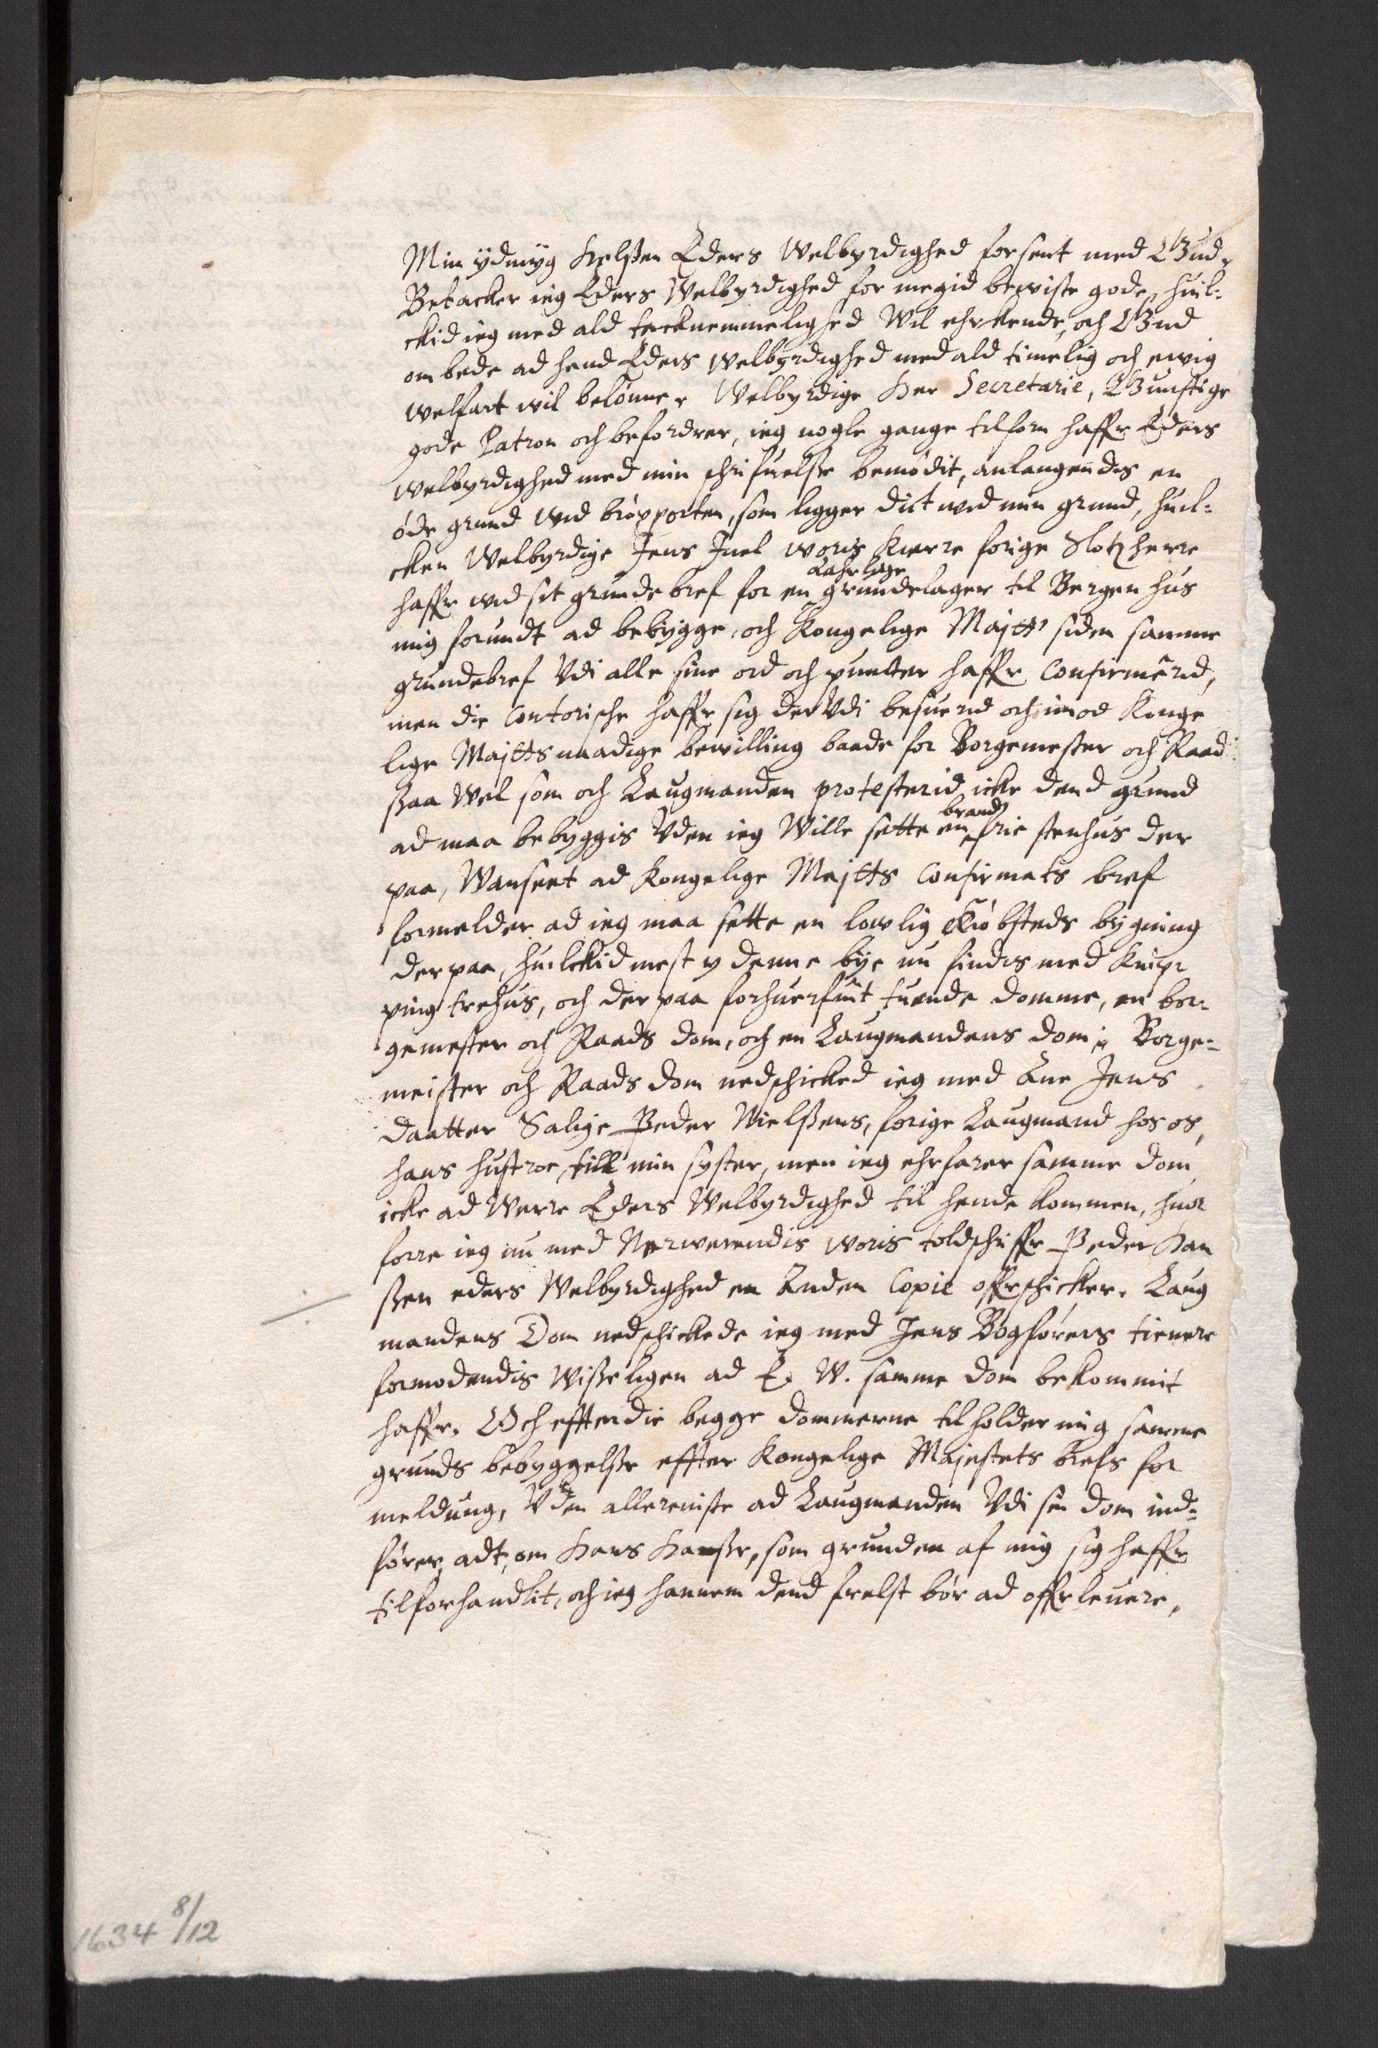 Min ydmyg Helssen Eders Welbyrdighed forsent med Gud,
Betacker ieg Eders Welbyrdighed for megid bewiste gode, huil-
ckid ieg med ald tacknemmelighed wil ehrkende, och Gud
ombede ad hand Eders Welbyrdighed med ald timelig och ewig
welfart wil belønne, Welbyrdige Her Secretarie, Gunstige
gode Patron och befordrer, ieg nogle gange tilforn haffr Eders
welbyrdighed med min schrifuelsse bemødit, anlangendis en
øde grund wed broxporten, som ligger dict wed min grund, huil-
cken Welbyrdige Jens Juel woris kierre forige Slotzherre
haffr wed sit grundebref for en Aahrlige grundelager til Bergenhus
mig forundt ad bebygge, och Kongelige Maytt siden samme
grundebref Vdi alle sine ord och puncter haffr confirmerid,
men die Contorische haffr sig der Vdi besuerid och imod Konge
lige Maytts naadige bewilling baade for Borgemester och Raad
saa wel som och Laugmanden protesterid icke dend grund
ad maa bebyggis Vden ieg Wille sette en brand frie stenhus der
paa, Wanseet ad Kongelige Maytts confirmats bref
formelder ad ieg maa sette en lowlig Kiøbsteds bygning
der paa, huilckid mest y denne bye nu findis med knip
ping trehus, och der paa forhuerfuit tuende domme, en bor-
gemester och Raads dom, och en Laugmandens dom, Borge-
meister och Raads dom nedschicked ieg med Ane Jens
daatter Salige Peder Nielssens, forige Laugmand hos os,
hans hustroe till min syster, men ieg ehrfarer samme dom
icke ad Were Eders Welbyrdighed til hende kommen, huor
forre ieg nu med Nerwerendis woris toldschriffr Peder Han
ssen eders Welbyrdighed en Anden Copie offrschicker. Laug
mandens Dom nedschickede ieg med Jens Bogførers tienere
formodendis wisseligen ad E. W. samme dom bekommit
haffr. Och effterdie begge dommerne tilholder mig samme
grunds bebyggelsse effter Kongelige Majestets brefs for
meldung, Vden alleeniste ad Laugmanden Vdi sin dom ind-
fører, adt, om Hans Hansse, som grunden af mig sig haffr
tilforhandlit, och ieg hannem dend frelst bør ad offrleuere,
1634 8/12